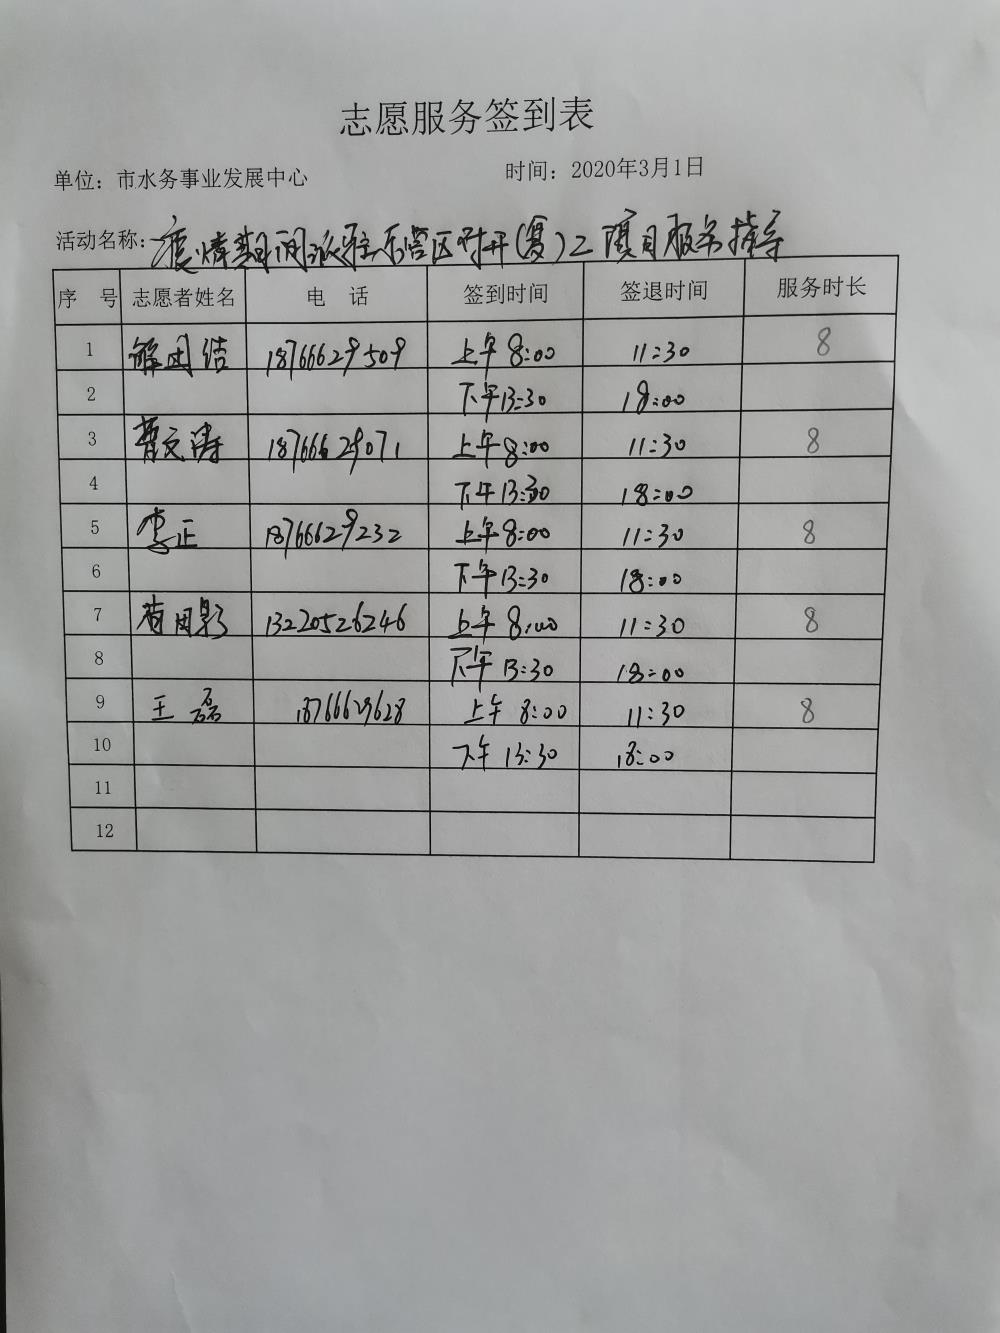 志愿服务签到表
单位：市水务事业发展中心 时间：2020年3月1日
活动名称：疫情期间派驻东营区对开(复)工项目服务指导
序 号 志愿者姓名 电 话 签到时间 签退时间 服务时长
1 解团结 18766629509 上午8:00 11:30 8
2 下午13:30 18:00
3 曹文涛 18766629071 上午8:00 11:30 8
4 下午13:30 18:00
5 李正 18766629232 上午8:00 11:30 8
6 下午13:30 18:00
7 13220526246 上午8:00 11:30 8
8 下午13:30 18:00
9 王磊 18766629628 上午8:00 11:30 8
10 下午13:30 18:00
11
12